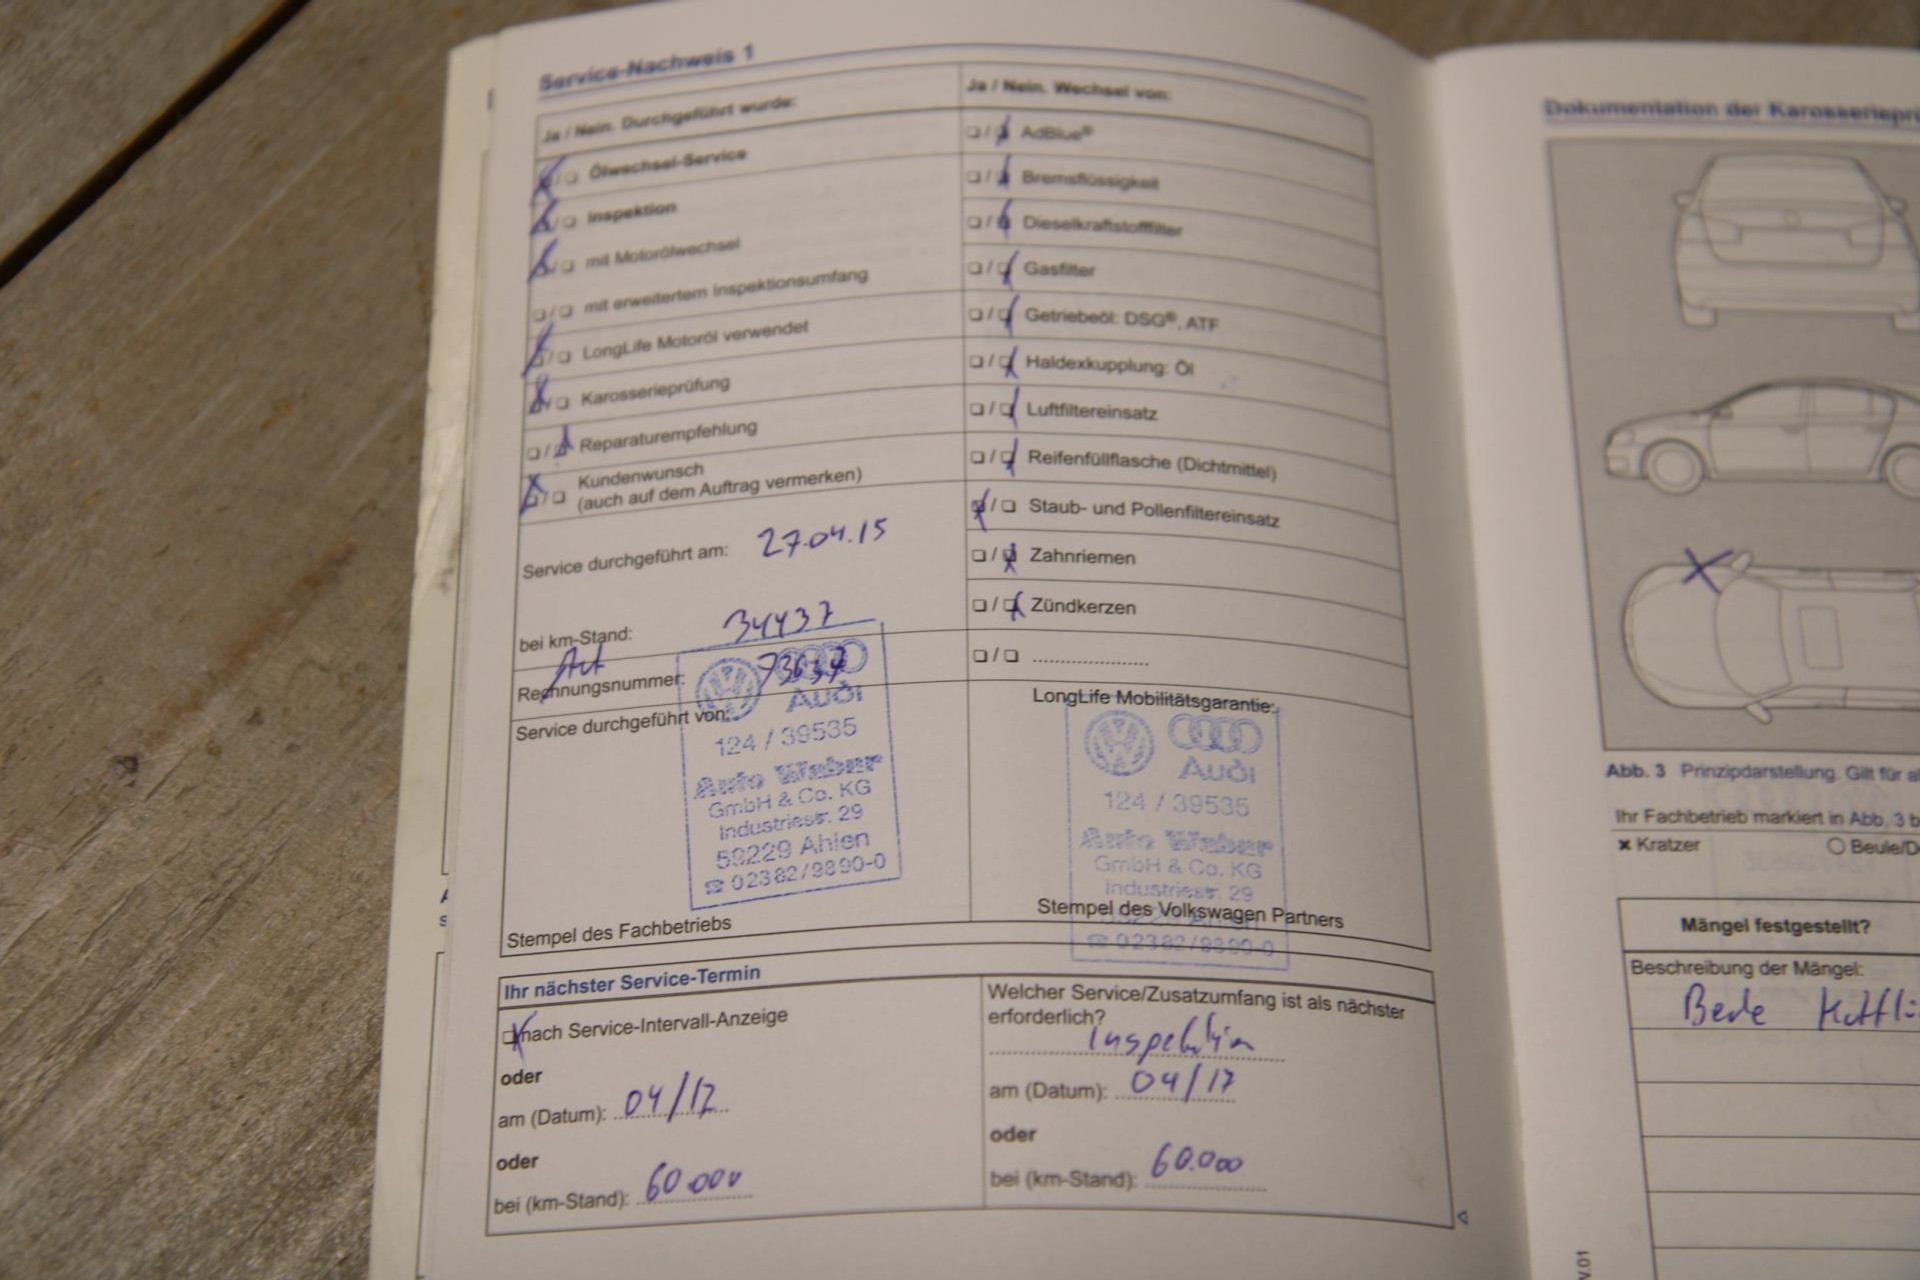 Service-Nachweis 1
Ja / Nein. Durchgeführt wurde:
Ölwechsel-Service
Inspektion
mit Motorölwechsel
mit erweitertem Inspektionsumfang
LongLife Motoröl verwendet
Karosserieprüfung
Reparaturempfehlung
Kundenwunsch
(auch auf dem Auftrag vermerken)
Service durchgeführt am: 27.04.15
bei km-Stand: 34437
Rechnungsnummer:
Service durchgeführt von:
Audi
124 / 39535
Auto Weber
GmbH & Co. KG
Industriestr. 29
59229 Ahlen
☎ 02382/9890-0
Stempel des Fachbetriebs
Ja / Nein. Wechsel von:
AdBlue®
Bremsflüssigkeit
Dieselkraftstofffilter
Gasfilter
Getriebeöl: DSG®, ATF
Haldexkupplung: Öl
Luftfiltereinsatz
Reifenfüllflasche (Dichtmittel)
Staub- und Pollenfiltereinsatz
Zahnriemen
Zündkerzen
LongLife Mobilitätsgarantie:
Audi
124 / 39535
Auto Weber
GmbH & Co. KG
Industriestr. 29
Stempel des Volkswagen Partners
☎ 02382/9890-0
Ihr nächster Service-Termin
nach Service-Intervall-Anzeige
oder
am (Datum): 04/17
oder
bei (km-Stand): 60.000
Welcher Service/Zusatzumfang ist als nächster
erforderlich?
Inspektion
am (Datum): 04/17
oder
bei (km-Stand): 60.000
Dokumentation der
Abb. 3 Prinzipdarstellung. Gilt für
Ihr Fachbetrieb markiert in Abb. 3
× Kratzer
Mängel festgestellt?
Beschreibung der Mängel: